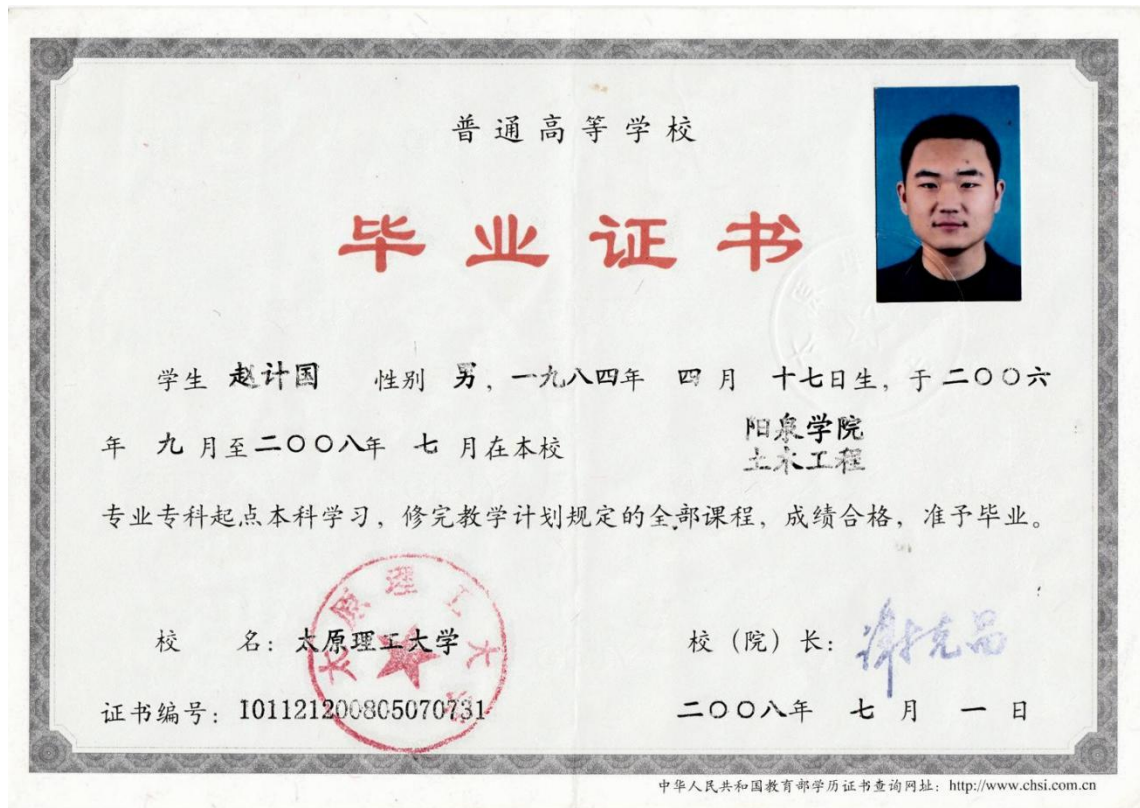 普通高等学校
毕业证书
学生 赵计国 性别 男，一九八四年 四 月 十七日生，于二〇〇六
年 九 月至二〇〇八年 七 月在本校 阳泉学院
土木工程
专业专科起点本科学习，修完教学计划规定的全部课程，成绩合格，准予毕业。
校 名：太原理工大学
校（院）长：谢克昌
太原理工大学
证书编号：101121200805070731
二〇〇八年 七 月 一 日
中华人民共和国教育部学历证书查询网址：http://www.chsi.com.cn